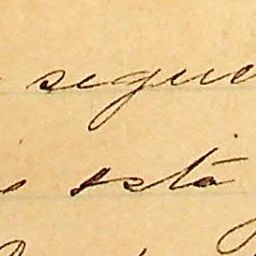 segue
está